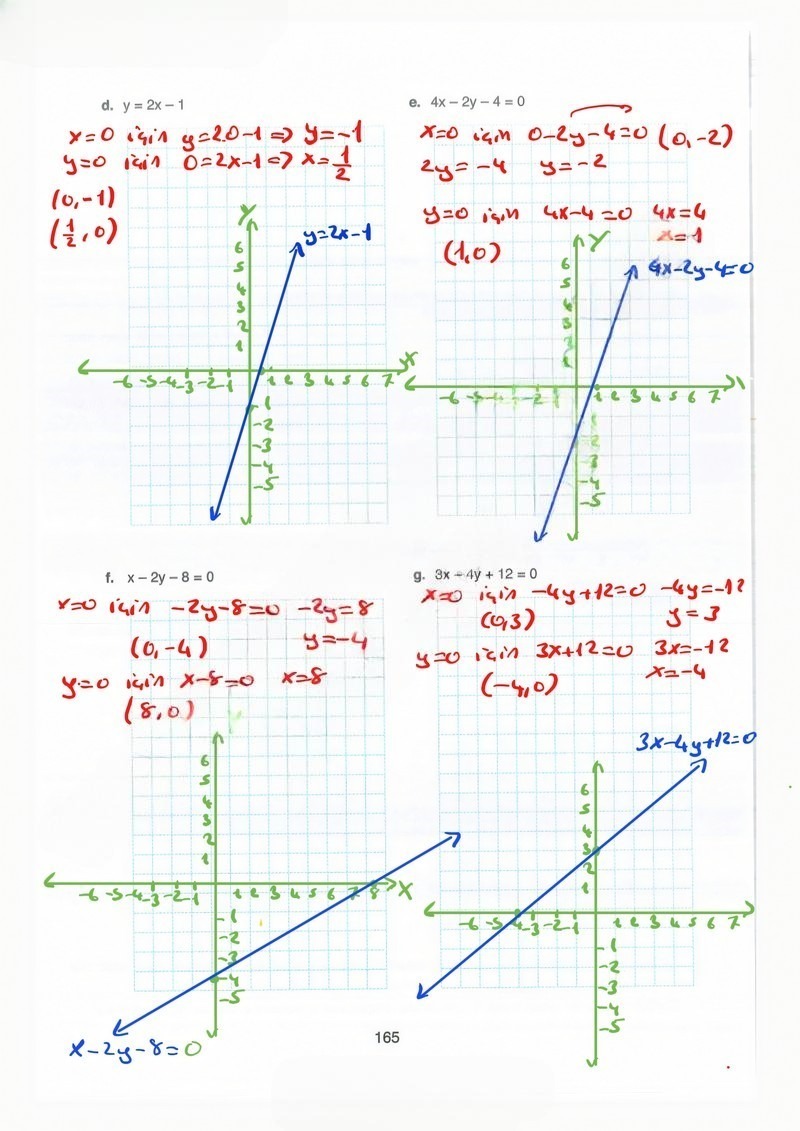 d. y = 2x – 1
x=0 için y=2.0-1 ⇒ y=-1
y=0 için 0=2x-1 ⇒ x=1/2
(0,-1)
(1/2, 0)
Y
y=2x-1
6
5
4
3
2
1
-6 -5 -4 -3 -2 -1 1 2 3 4 5 6 7 X
-1
-2
-3
-4
-5
e. 4x – 2y – 4 = 0
x=0 için 0-2y-4=0 (0,-2)
2y=-4 y=-2
y=0 için 4x-4=0 4x=4
x=1
(1,0)
Y
4x-2y-4=0
6
5
4
3
2
1
-6 -5 -4 -3 -2 -1 1 2 3 4 5 6 7
-1
-2
-3
-4
-5
f. x – 2y – 8 = 0
x=0 için -2y-8=0 -2y=8
(0,-4) y=-4
y=0 için x-8=0 x=8
(8,0)
Y
6
5
4
3
2
1
-6 -5 -4 -3 -2 -1 1 2 3 4 5 6 7 8 X
-1
-2
-3
-4
-5
x-2y-8=0
g. 3x – 4y + 12 = 0
x=0 için -4y+12=0 -4y=-12
(0,3) y=3
y=0 için 3x+12=0 3x=-12
x=-4
(-4,0)
3x-4y+12=0
6
5
4
3
2
1
-6 -5 -4 -3 -2 -1 1 2 3 4 5 6 7
-1
-2
-3
-4
-5
165